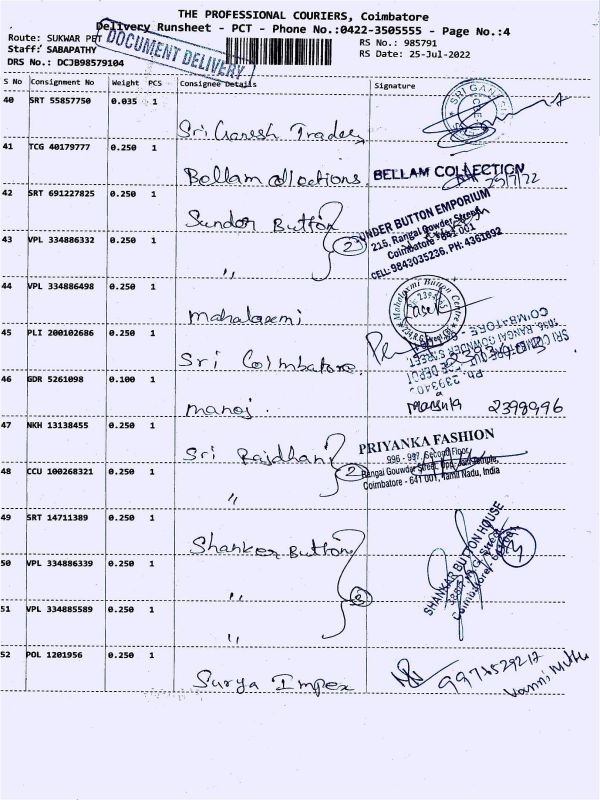 THE PROFESSIONAL COURIERS, Coimbatore
Delivery Runsheet - PCT - Phone No.:0422-3505555 - Page No.:4
Route: SUKWAR PET
RS No.: 985791
Staff: SABAPATHY
RS Date: 25-Jul-2022
DRS No.: DCJB98579104
DOCUMENT DELIVERY
S No Consignment No Weight PCS Consignee Details Signature
40 SRT 55857750 0.035 1
Sri Ganesh Traders
SRI GANESH
41 TCG 40179777 0.250 1
Bellam collections.
BELLAM COLLECTION
25/7/22
42 SRT 691227825 0.250 1
Sundor Button
2
SUNDER BUTTON EMPORIUM
215, Rangai Gowder Street
Coimbatore - 641 001
CELL: 9843035236, PH: 4361892
43 VPL 334886332 0.250 1
"
44 VPL 334886498 0.250 1
mahalaxmi
Mahalaxmi Button Centre
45 PLI 200102686 0.250 1
Sri Coimbatore.
SRI COIMBATORE CUT PIECE DEPOT
RANGAI GOWNDER STREET,
COIMBATORE -
46 GDR 5261098 0.100 1
manoj.
2398996
47 NKH 13138455 0.250 1
Sri Rajdhani
2
PRIYANKA FASHION
996 - 997, Second Floor,
Rangai Gouwder Street, Opp.
Coimbatore - 641 001, Tamil Nadu, India
48 CCU 100268321 0.250 1
"
49 SRT 14711389 0.250 1
Shanker Button
3
SHANKAR BUTTON HOUSE
50 VPL 334886339 0.250 1
"
51 VPL 334885589 0.250 1
"
52 POL 1201956 0.250 1
Surya Impex